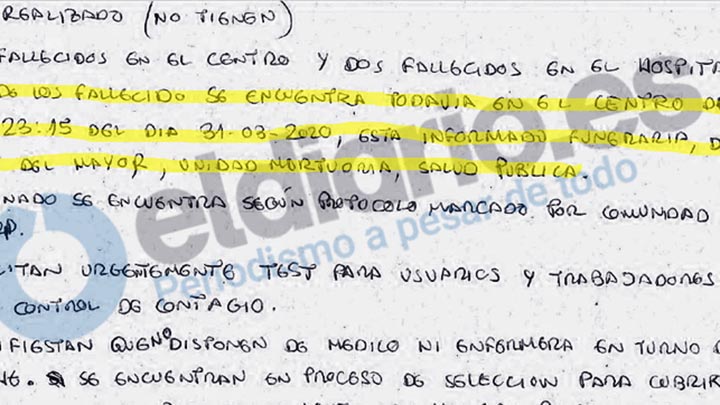 REALIZADO (NO TIENEN)
FALLECIDOS EN EL CENTRO Y DOS FALLECIDOS EN EL HOSPITA
DE LOS FALLECIDO SE ENCUENTRA TODAVIA EN EL CENTRO
23:15 DEL DIA 31-03-2020, ESTA INFORMADO FUNERARIA, D
DEL MAYOR, UNIDAD MORTUORIA, SALUD PUBLICA.
NADO SE ENCUENTRA SEGÚN PROTOCOLO MARCADO POR COMUNIDAD
eldiario.es
Periodismo a pesar de todo
ITAN URGENTEMENTE TEST PARA USUARIOS Y TRABAJADORES
CONTROL DE CONTAGIO.
IFIESTAN QUE NO DISPONEN DE MEDICO NI ENFERMERA EN TURNO
SE ENCUENTRAN EN PROCESO DE SELECCION PARA CUBRIR